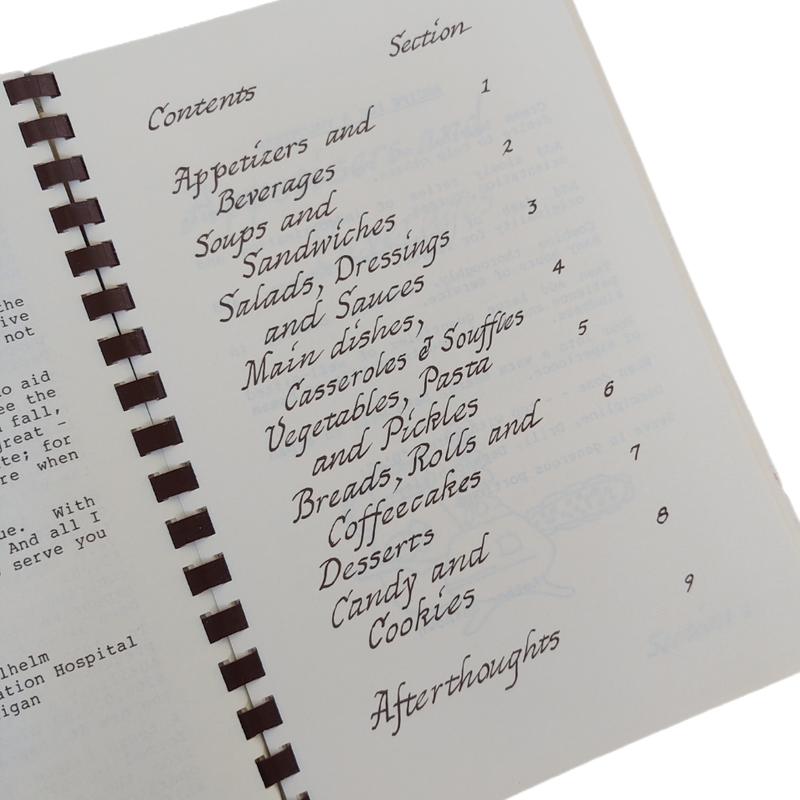 the
ive
not
o aid
ee the
fall,
great -
te; for
re when
ue. With
And all I
serve you
lhelm
ation Hospital
igan
Contents Section
Appetizers and 1
Beverages
Soups and 2
Sandwiches
Salads, Dressings 3
and Sauces
Main dishes, 4
Casseroles & Souffles
Vegetables, Pasta 5
and Pickles
Breads, Rolls and 6
Coffeecakes
Desserts 7
Candy and 8
Cookies
Afterthoughts 9